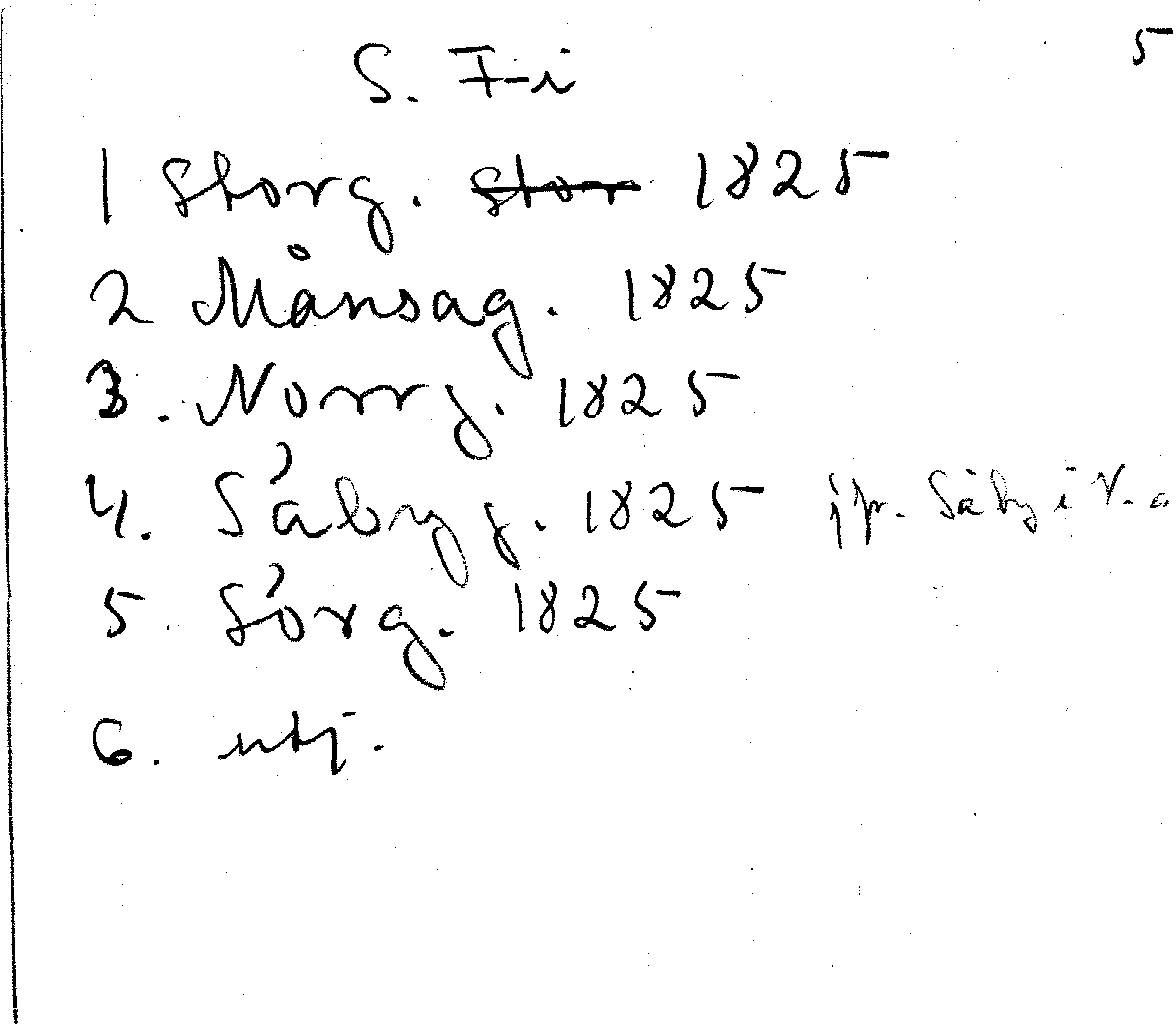 S. Fi 5
1 Storg. Stor 1825
2 Månsag. 1825
3. Norrg. 1825
4. Såbyg. 1825 jfr. Såby i V.
5. Sörg. 1825
6. utj.